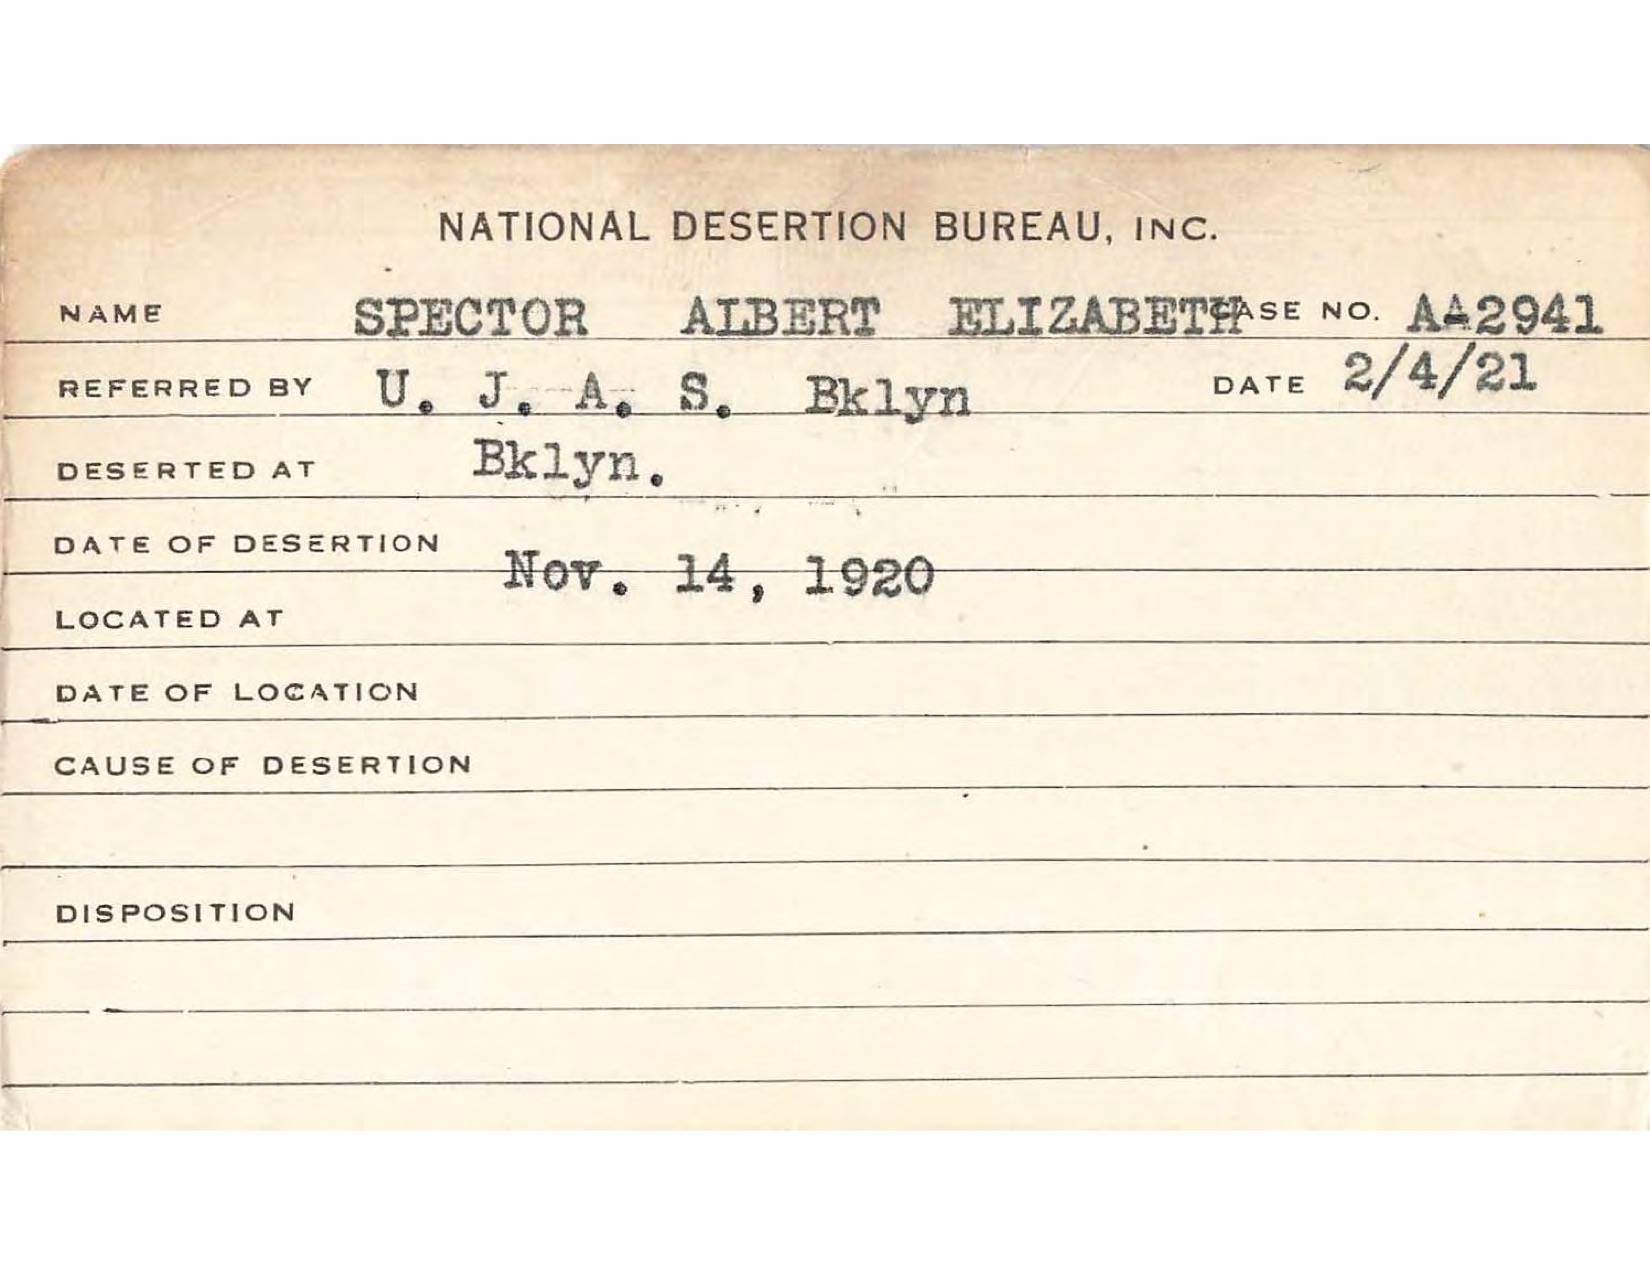 NATIONAL DESERTION BUREAU, INC.
NAME SPECTOR ALBERT ELIZABETH CASE NO. AA2941
REFERRED BY U. J. A. S. Bklyn DATE 2/4/21
DESERTED AT Bklyn.
DATE OF DESERTION Nov. 14, 1920
LOCATED AT
DATE OF LOCATION
CAUSE OF DESERTION
DISPOSITION